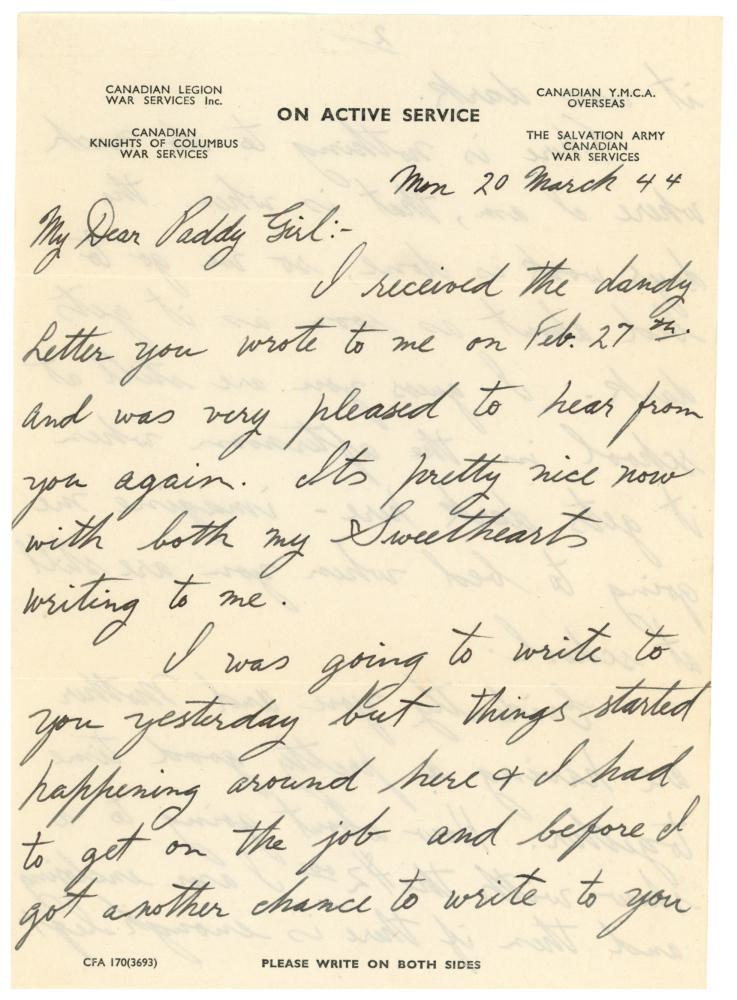 CANADIAN LEGION
WAR SERVICES Inc.
CANADIAN
KNIGHTS OF COLUMBUS
WAR SERVICES
ON ACTIVE SERVICE
CANADIAN Y.M.C.A.
OVERSEAS
THE SALVATION ARMY
CANADIAN
WAR SERVICES
Mon 20 March 44
My Dear Paddy Girl:-
I received the dandy
Letter you wrote to me on Feb. 27th.
and was very pleased to hear from
you again. Its pretty nice now
with both my Sweethearts
writing to me.
I was going to write to
you yesterday but things started
happening around here & I had
to get on the job and before I
got another chance to write to you
CFA 170(3693)
PLEASE WRITE ON BOTH SIDES